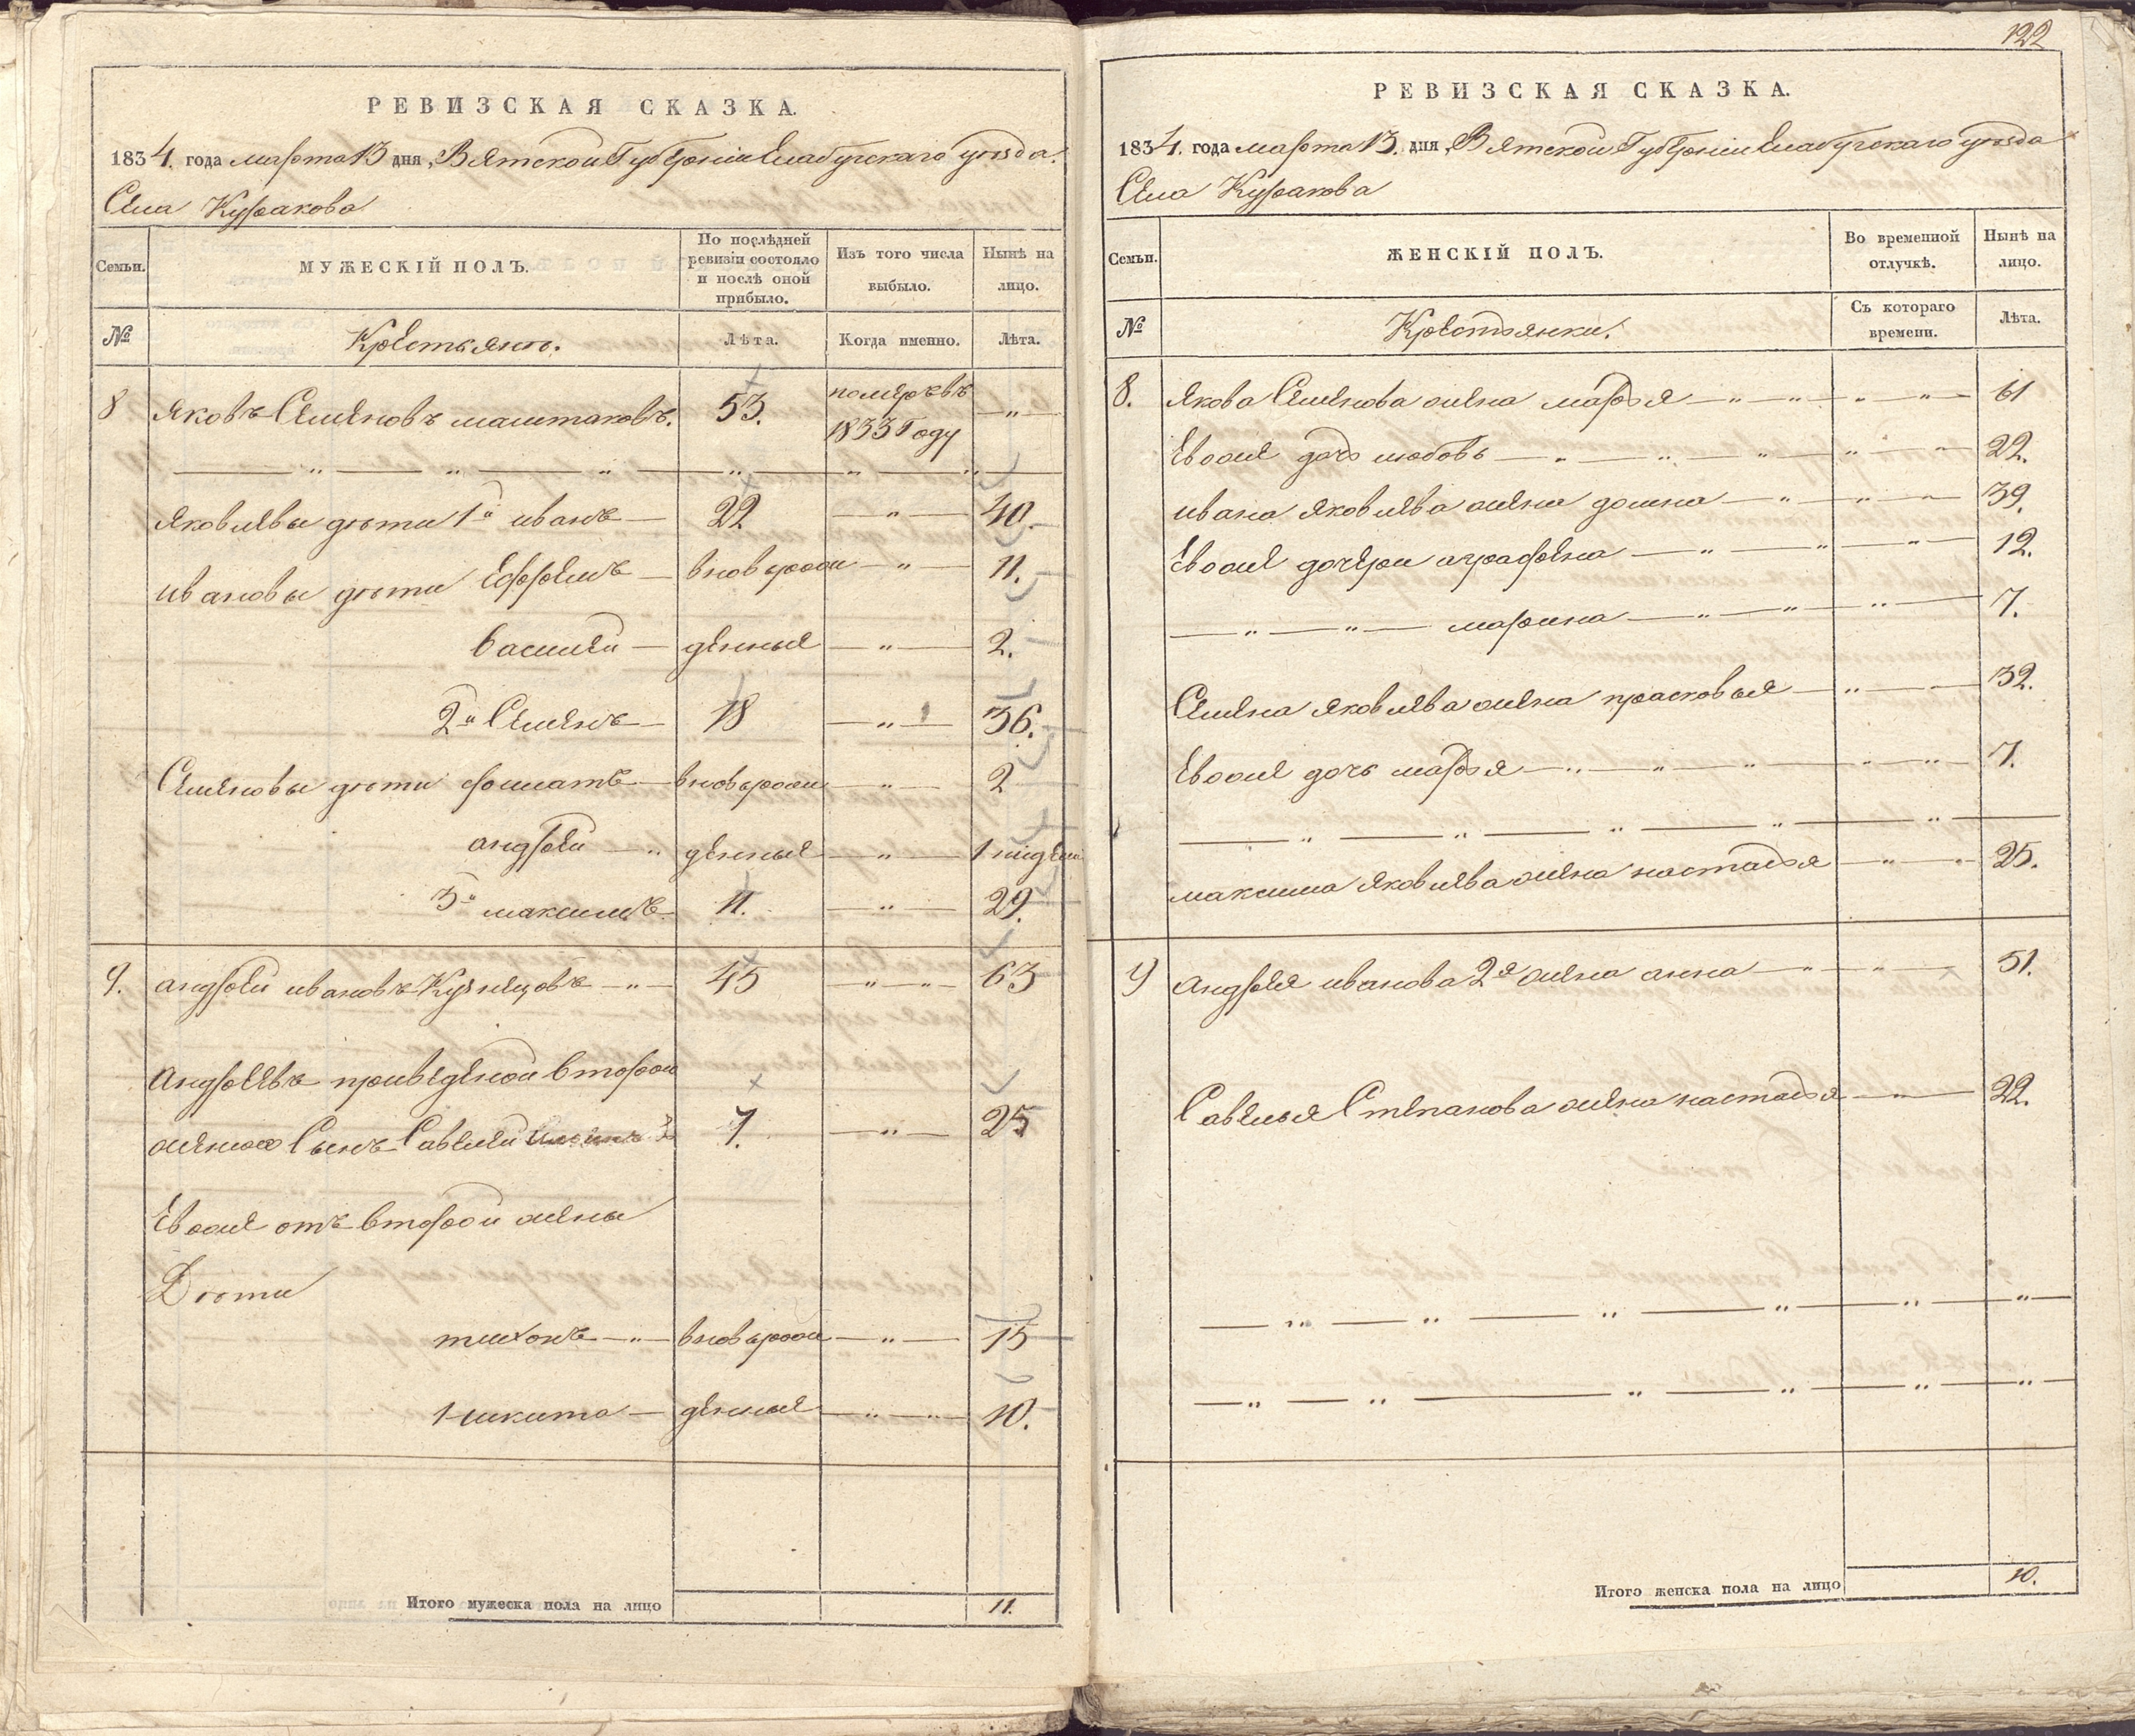 РЕВИЗСКАЯ СКАЗКА.
1834. года марта 13 дня, Вятской Губерніи Елабугскаго уѣзда.
Села Куракова
Семьи.
МУЖЕСКІЙ ПОЛЪ.
По послѣдней ревизіи состояло и послѣ оной прибыло.
Изъ того числа выбыло.
Нынѣ на лицо.
№
Крестьянъ.
Лѣта.
Когда именно.
Лѣта.
8 Яковъ Семеновъ маштаковъ. 53. померъ въ 1833 Году — „ —
Яковлевы дѣти 1й иванъ — 22 — „ — 40.
ивановы дѣти Ефремъ — вновь рож — „ — 11.
василей — денные — „ — 2.
2й Семенъ — 18 — „ — 36.
Семеновы дѣти филатъ — вновь рож — „ — 2
андрей — „ денные — „ — 1 недели
3й максимъ 11. — „ — 29.
9. андрей ивановъ Кузнецовъ — „ — 45 — „ — „ — 63
Андреевъ приведеной второй
женою Сынъ Савелей 7. — „ — 25
Ево же отъ второй жены
Дѣти
тихонъ — „ — вновь рож — „ — 15
Никита — денные — „ — „ — 10.
Итого мужеска пола на лицо 11.
122
РЕВИЗСКАЯ СКАЗКА.
1834. года марта 13. дня, Вятской Губерніи Елабугскаго уѣзда
Села Куракова
Семьи.
ЖЕНСКІЙ ПОЛЪ.
Во временной отлучкѣ.
Нынѣ на лицо.
№
Крестьянки.
Съ котораго времени.
Лѣта.
8. Якова Семенова жена марья — „ — „ — „ — „ — 61
Ево же дочь любовь — „ — „ — „ — „ — „ — 22.
ивана яковлева жена домна — „ — „ — „ — 39.
Ево же дочери аграфена — „ — „ — „ — 12.
— „ — „ — марина — „ — „ — „ — 7.
Семена яковлева жена прасковья — „ — 32.
Ево же дочь марья — „ — „ — „ — „ — „ — 7.
максима яковлева жена настасья — „ — „ — 25.
9 Андрея иванова 2я жена анна — „ — „ — 51.
Савелья Степанова жена настасья — „ — 22.
Итого женска пола на лицо 10.